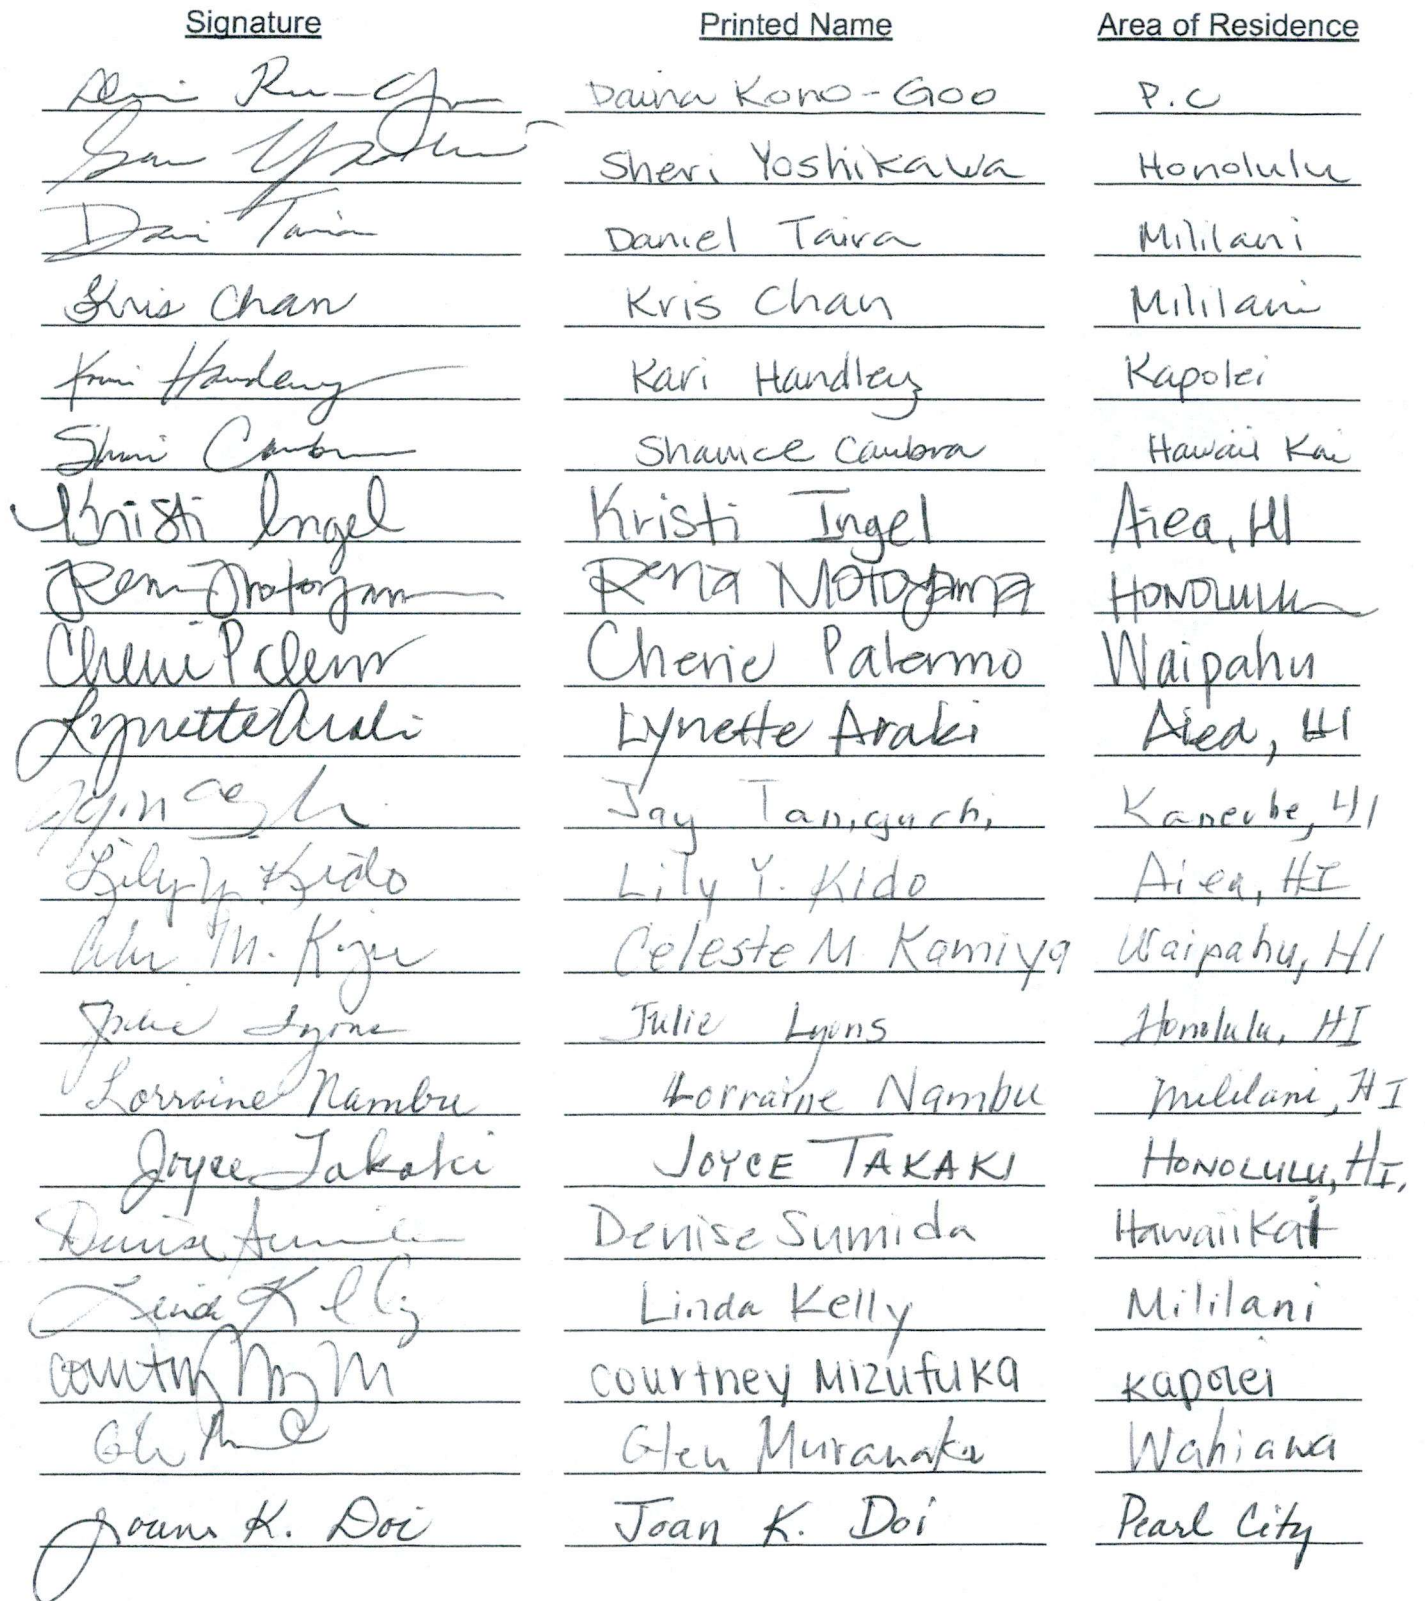 Signature Printed Name Area of Residence
Daina Kono-Goo P.C
Sheri Yoshikawa Honolulu
Daniel Taira Mililani
Kris Chan Kris Chan Mililani
Kari Handley Kapolei
Hawaii Kai
Kristi Ingel Kristi Ingel Aiea, HI
Rena Motoyama HONOLULU
Cherie Palermo Waipahu
Lynette Araki Lynette Araki Aiea, HI
Jay Taniguchi Kaneohe, HI
Lily Y. Kido Lily Y. Kido Aiea, HI
Celeste M Kamiya Waipahu, HI
Julie Lyons Julie Lyons Honolulu, HI
Lorraine Nambu Lorraine Nambu Mililani, HI
Joyce Takaki JOYCE TAKAKI HONOLULU, HI.
Denise Sumida Denise Sumida Hawaii Kai
Linda Kelly Linda Kelly Mililani
courtney Mizufuka Kapolei
Glen Muranaka Wahiawa
Joan K. Doi Joan K. Doi Pearl City